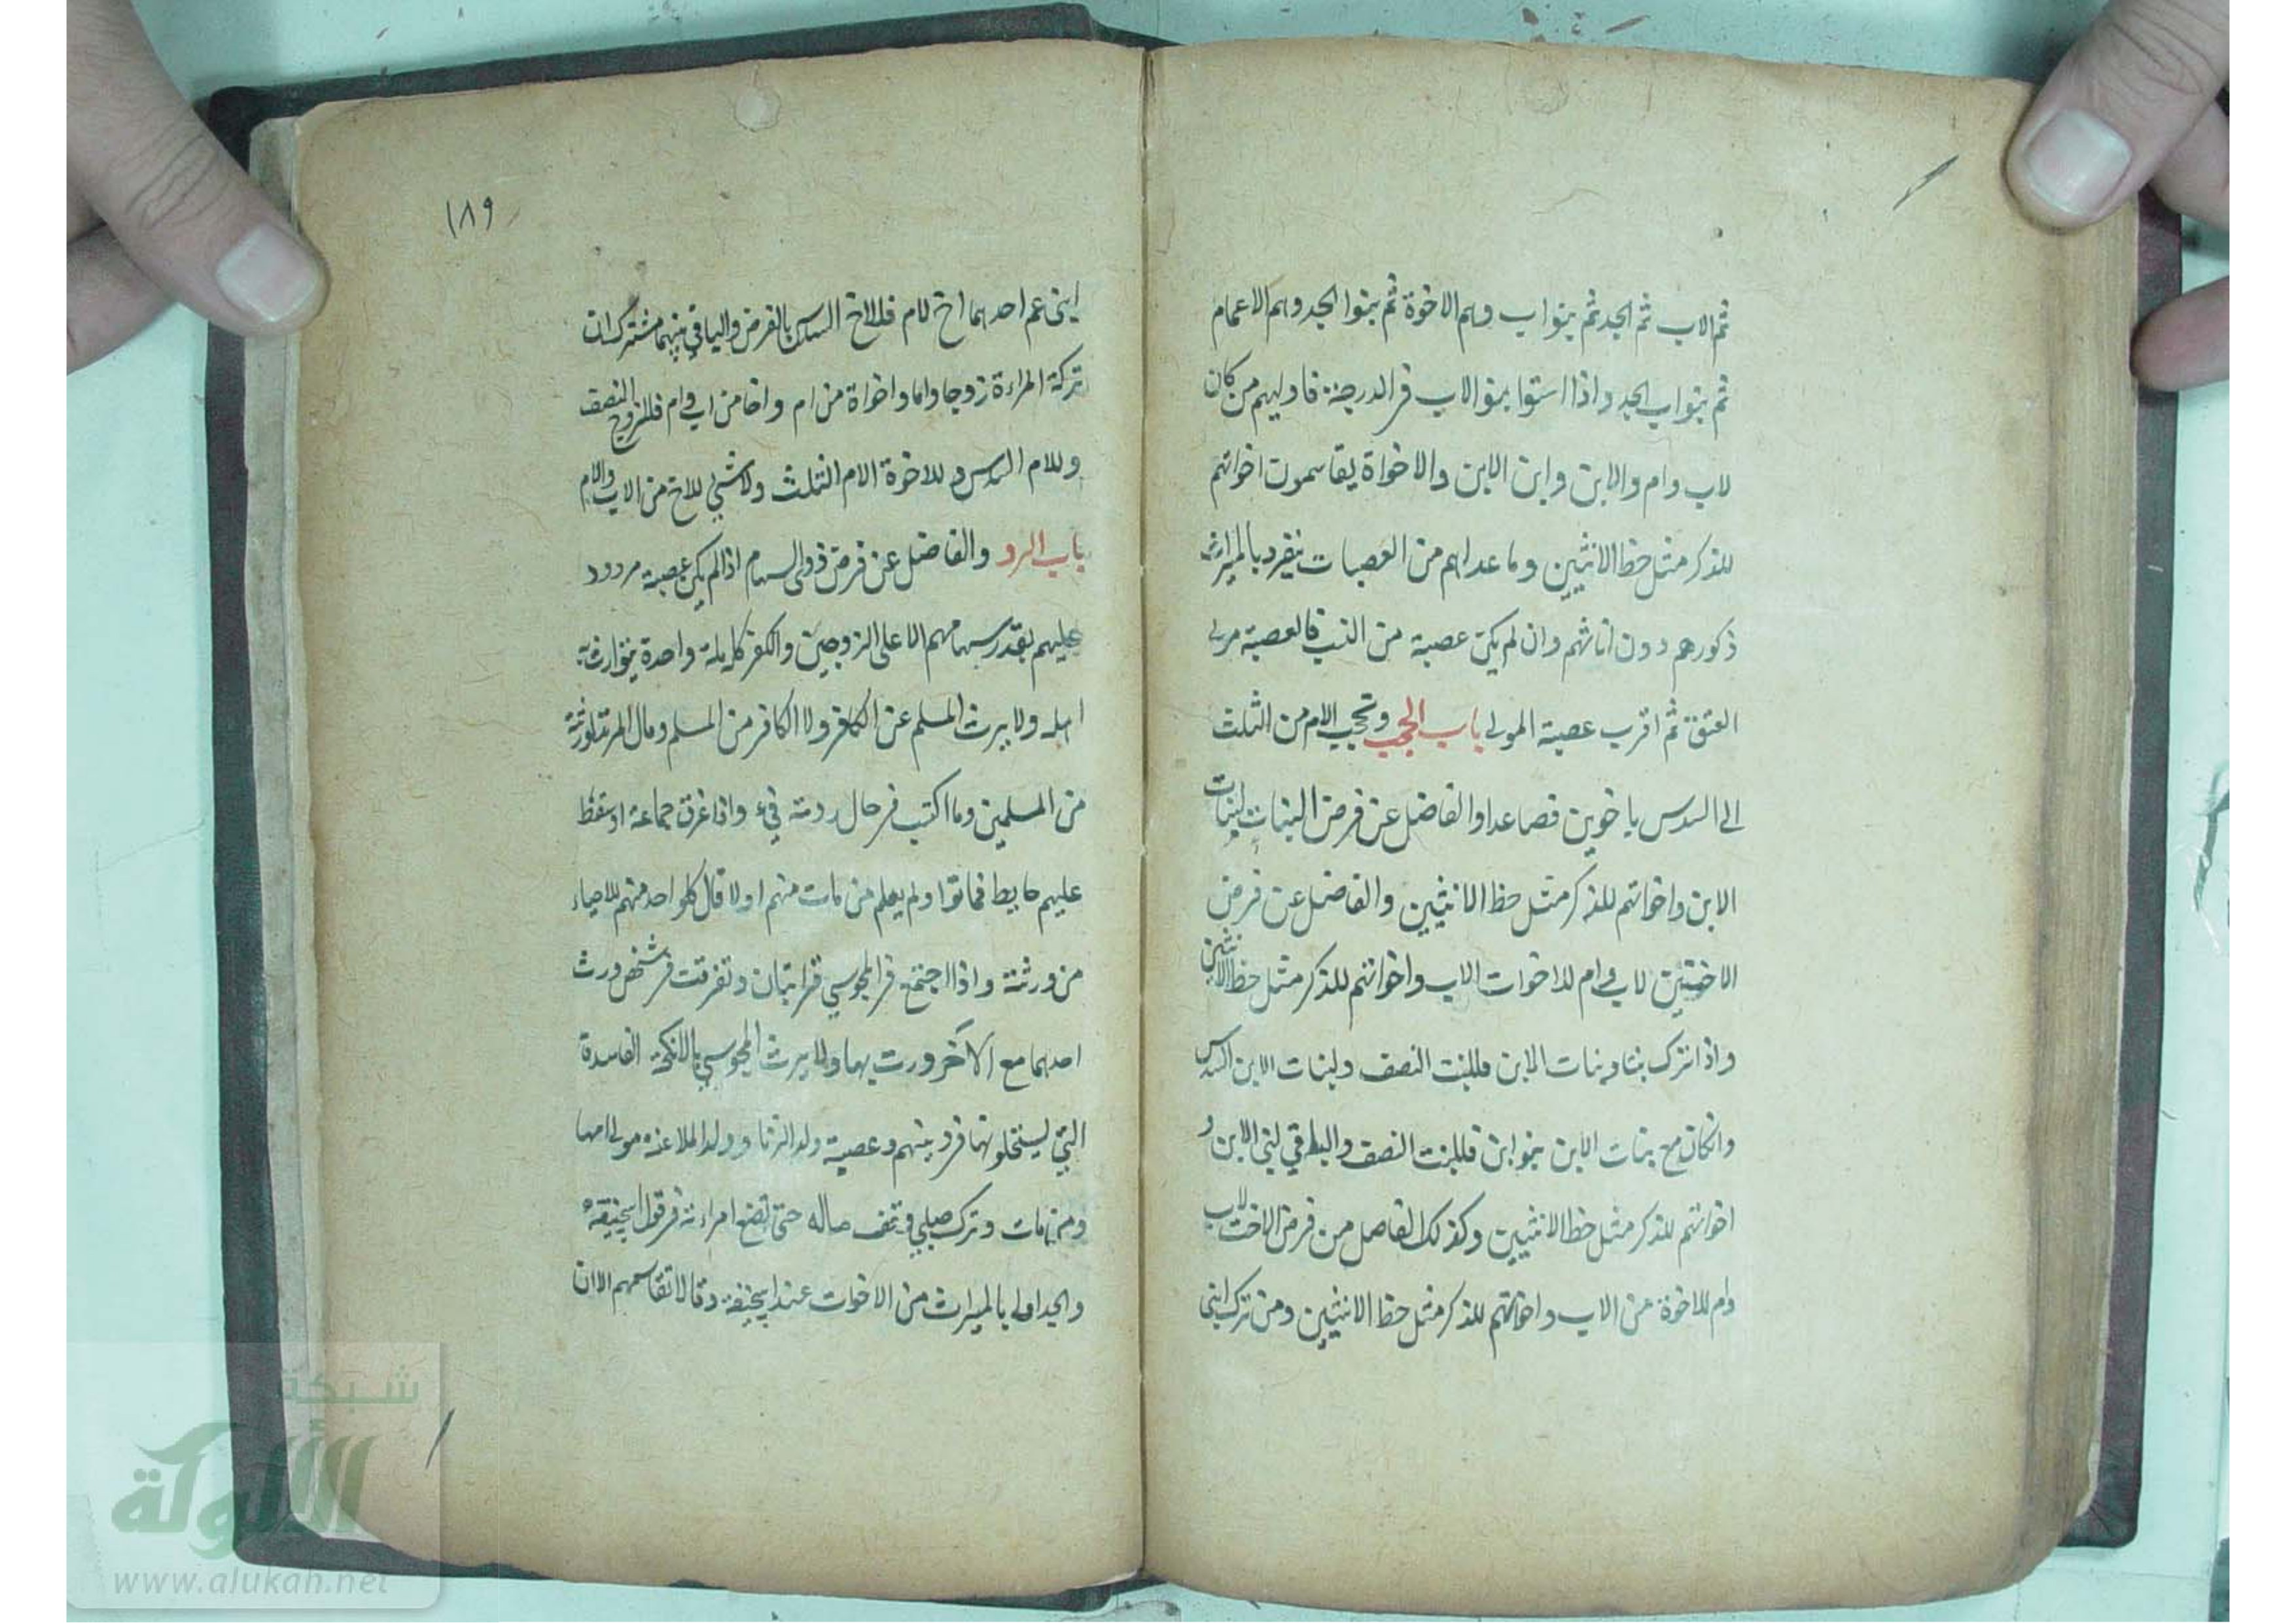 ثم الاب ثم الجد ثم بنوا اب وهم الاخوة ثم بنوا الجد وهم الاعمام
ثم بنوا اب الجد واذا استوا بنوا الاب فى الدرجة فاوليهم من كان
لاب وام والابن وابن الابن والاخواة يقاسمون اخواتهم
للذكر مثل حظ الانثيين وما عداهم من العصبات ينفرد بالميراث
ذكورهم دون اناثهم وان لم يكن عصبة من النسب فالعصبة مولى
العتق ثم اقرب عصبة المولى باب الحجب وتحجب الام من الثلث
الى السدس باخوين فصاعدا والفاضل عن فرض البنات لبنات
الابن واخواتهم للذكر مثل حظ الانثيين والفاضل عن فرض
الاختين لاب وام للاخوات الاب واخواتهم للذكر مثل حظ الانثيين
واذا ترك بنتا وبنات الابن فللبنت النصف ولبنات الابن السدس
وانكان مع بنات الابن بنوا ابن فللبنت النصف والباقي لبنى الابن و
اخواتهم للذكر مثل حظ الانثيين وكذلك الفاصل من فرض الاخت لاب
وام للاخوة من الاب واخواتهم للذكر مثل حظ الانثيين ومن ترك ابنى
١٨٩
ابنى عم احدهما اخ لام فللاخ السدس بالفرض والباقي بينهما مشتركان
تركة المراءة زوجا واما واخواة من ام واخا من اب وام فللزوج النصف
وللام السدس وللاخوة الام الثلث ولا شئ للاخ من الاب والام
باب الرد والفاضل عن فرض ذوى السهام اذا لم يكن عصبة مردود
عليهم بقدر سهامهم الا على الزوجين والكفر كله ملة واحدة يتوارث به
اهله ولا يرث المسلم عن الكافر ولا الكافر من المسلم ومال المرتد لورثته
من المسلمين وما اكتسب فى حال ردته فيء واذا غرق جماعة او سقط
عليهم حايط فماتوا ولم يعلم من مات منهم اولا فال كل واحد منهم للاحياء
من ورثته واذا اجتمع فى المجوسي قرابتان وتفرقت فى شخص ورث
احدهما مع الآخر ورث بهما ولا يرث المجوسي بالانكحة الفاسدة
التي يستحلونها فى دينهم وعصبة ولد الزنا وولد الملاعنة مولى امهما
ومن مات وترك حبلي وقف ماله حتى تضع امراءته فى قول ابيحنيفة
والجد اولى بالميراث من الاخوات عند ابيحنيفة وقالا تقاسمهم الا ان
شبكة
الألوكة
www.alukah.net